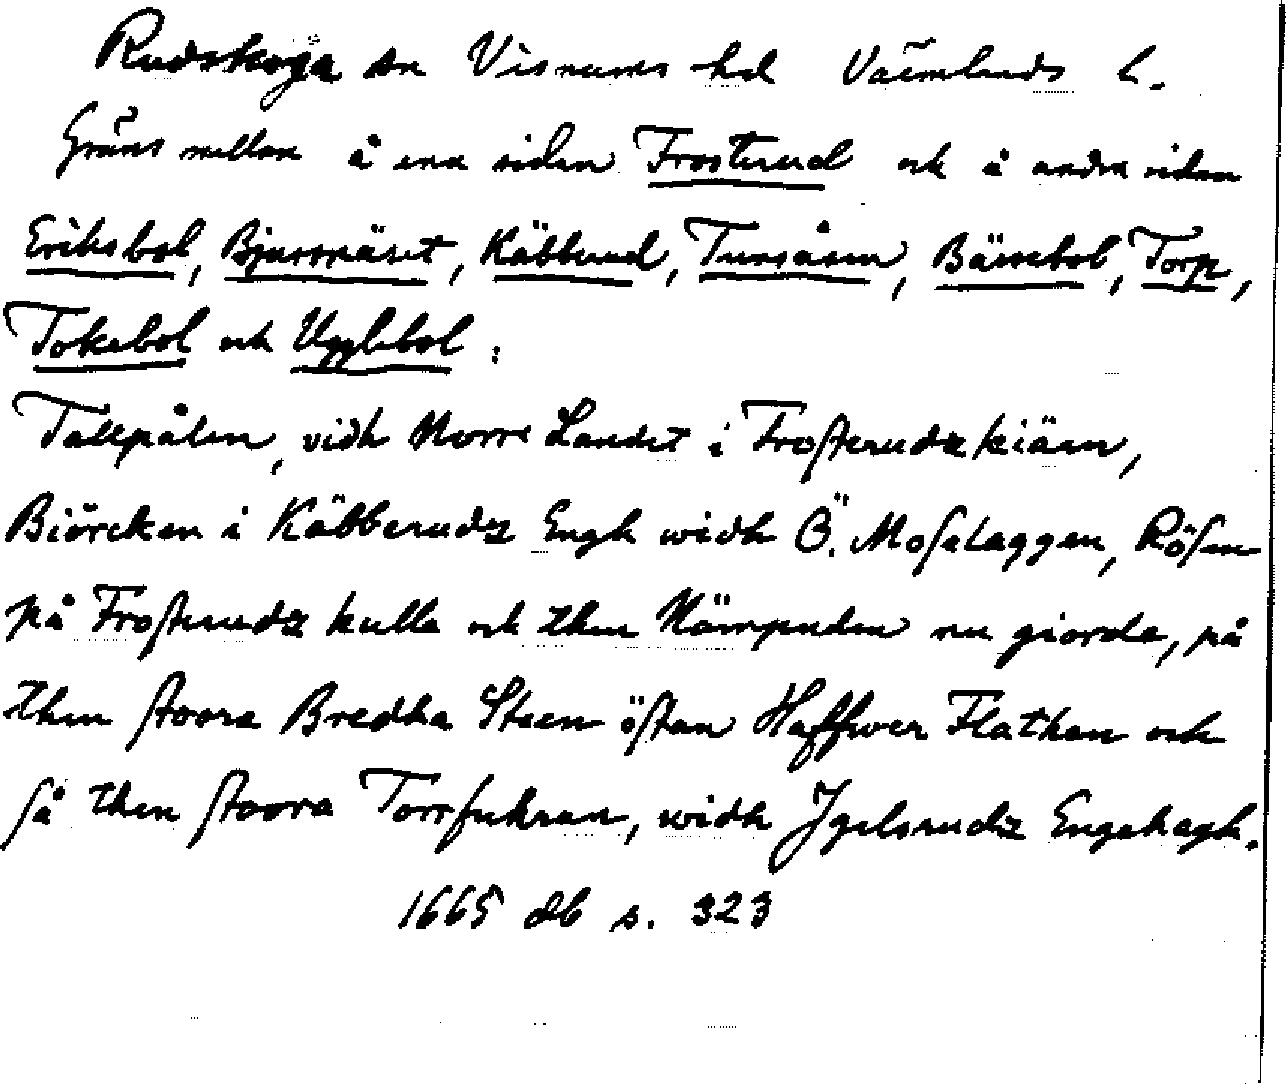 Rudskoga sn Visnums hd Värmlands l.
Gräns mellan å ena sidan Frosterud och å andra sidan
Eriksbol, Bjurnäset, Käbberud, Tursåsen, Bäverbol, Torp,
Tokebol och Ugglebol:
Tallpålen, vidh Norre Landet i Frosterudz kiärn,
Biörcken i Käbberudz Engh widh Ö. Moselaggen, Rösen
på Frosterudz kulle och then Nämpnden nu giorde, på
then stoora Bredha Steen östan Haffwer Flathan och
så then stoora Torrfuhran, widh Jgelsrudz Engehagh.
1665 db s. 323